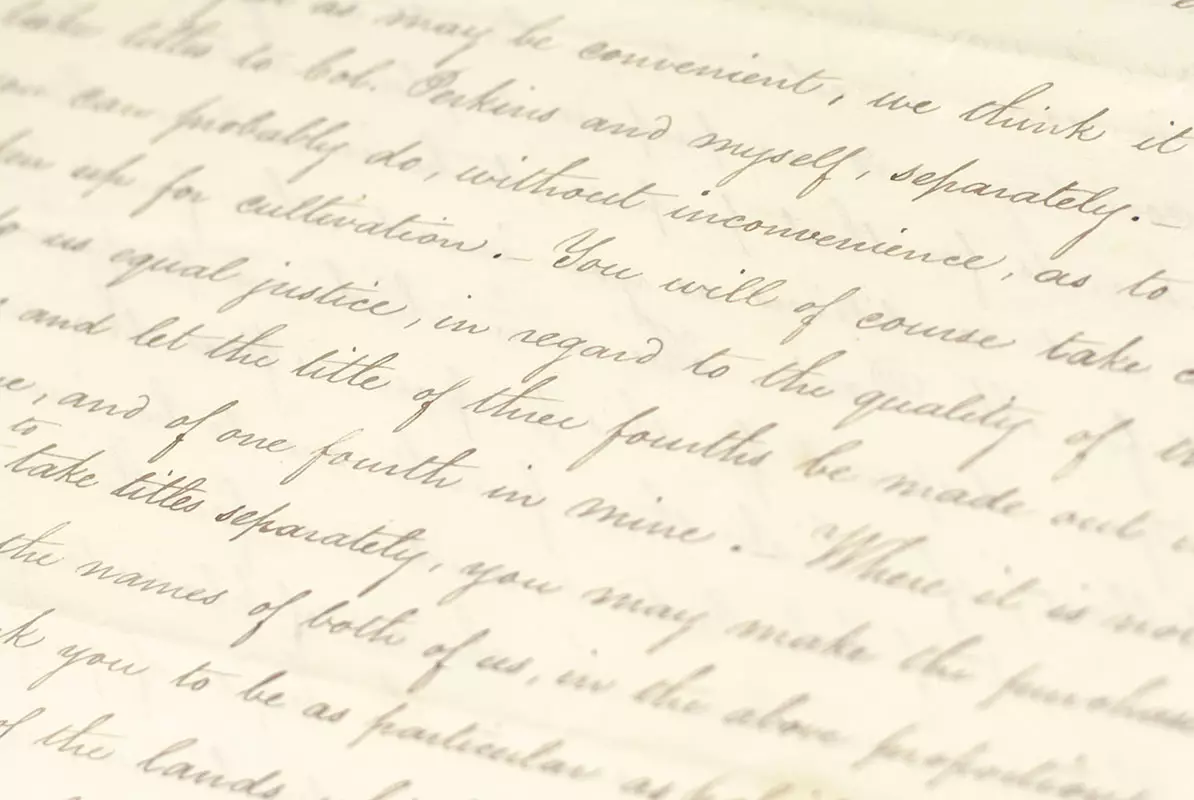 as may be convenient, we think it
take titles to Col. Perkins and myself, separately.—
can probably do, without inconvenience, as to
up for cultivation.— You will of course take
us equal justice, in regard to the quality of
and let the title of three fourths be made out
, and of one fourth in mine.— Where it is
to
take titles separately, you may make the purchase
the names of both of us, in the above proportions
you to be as particular as
of the lands